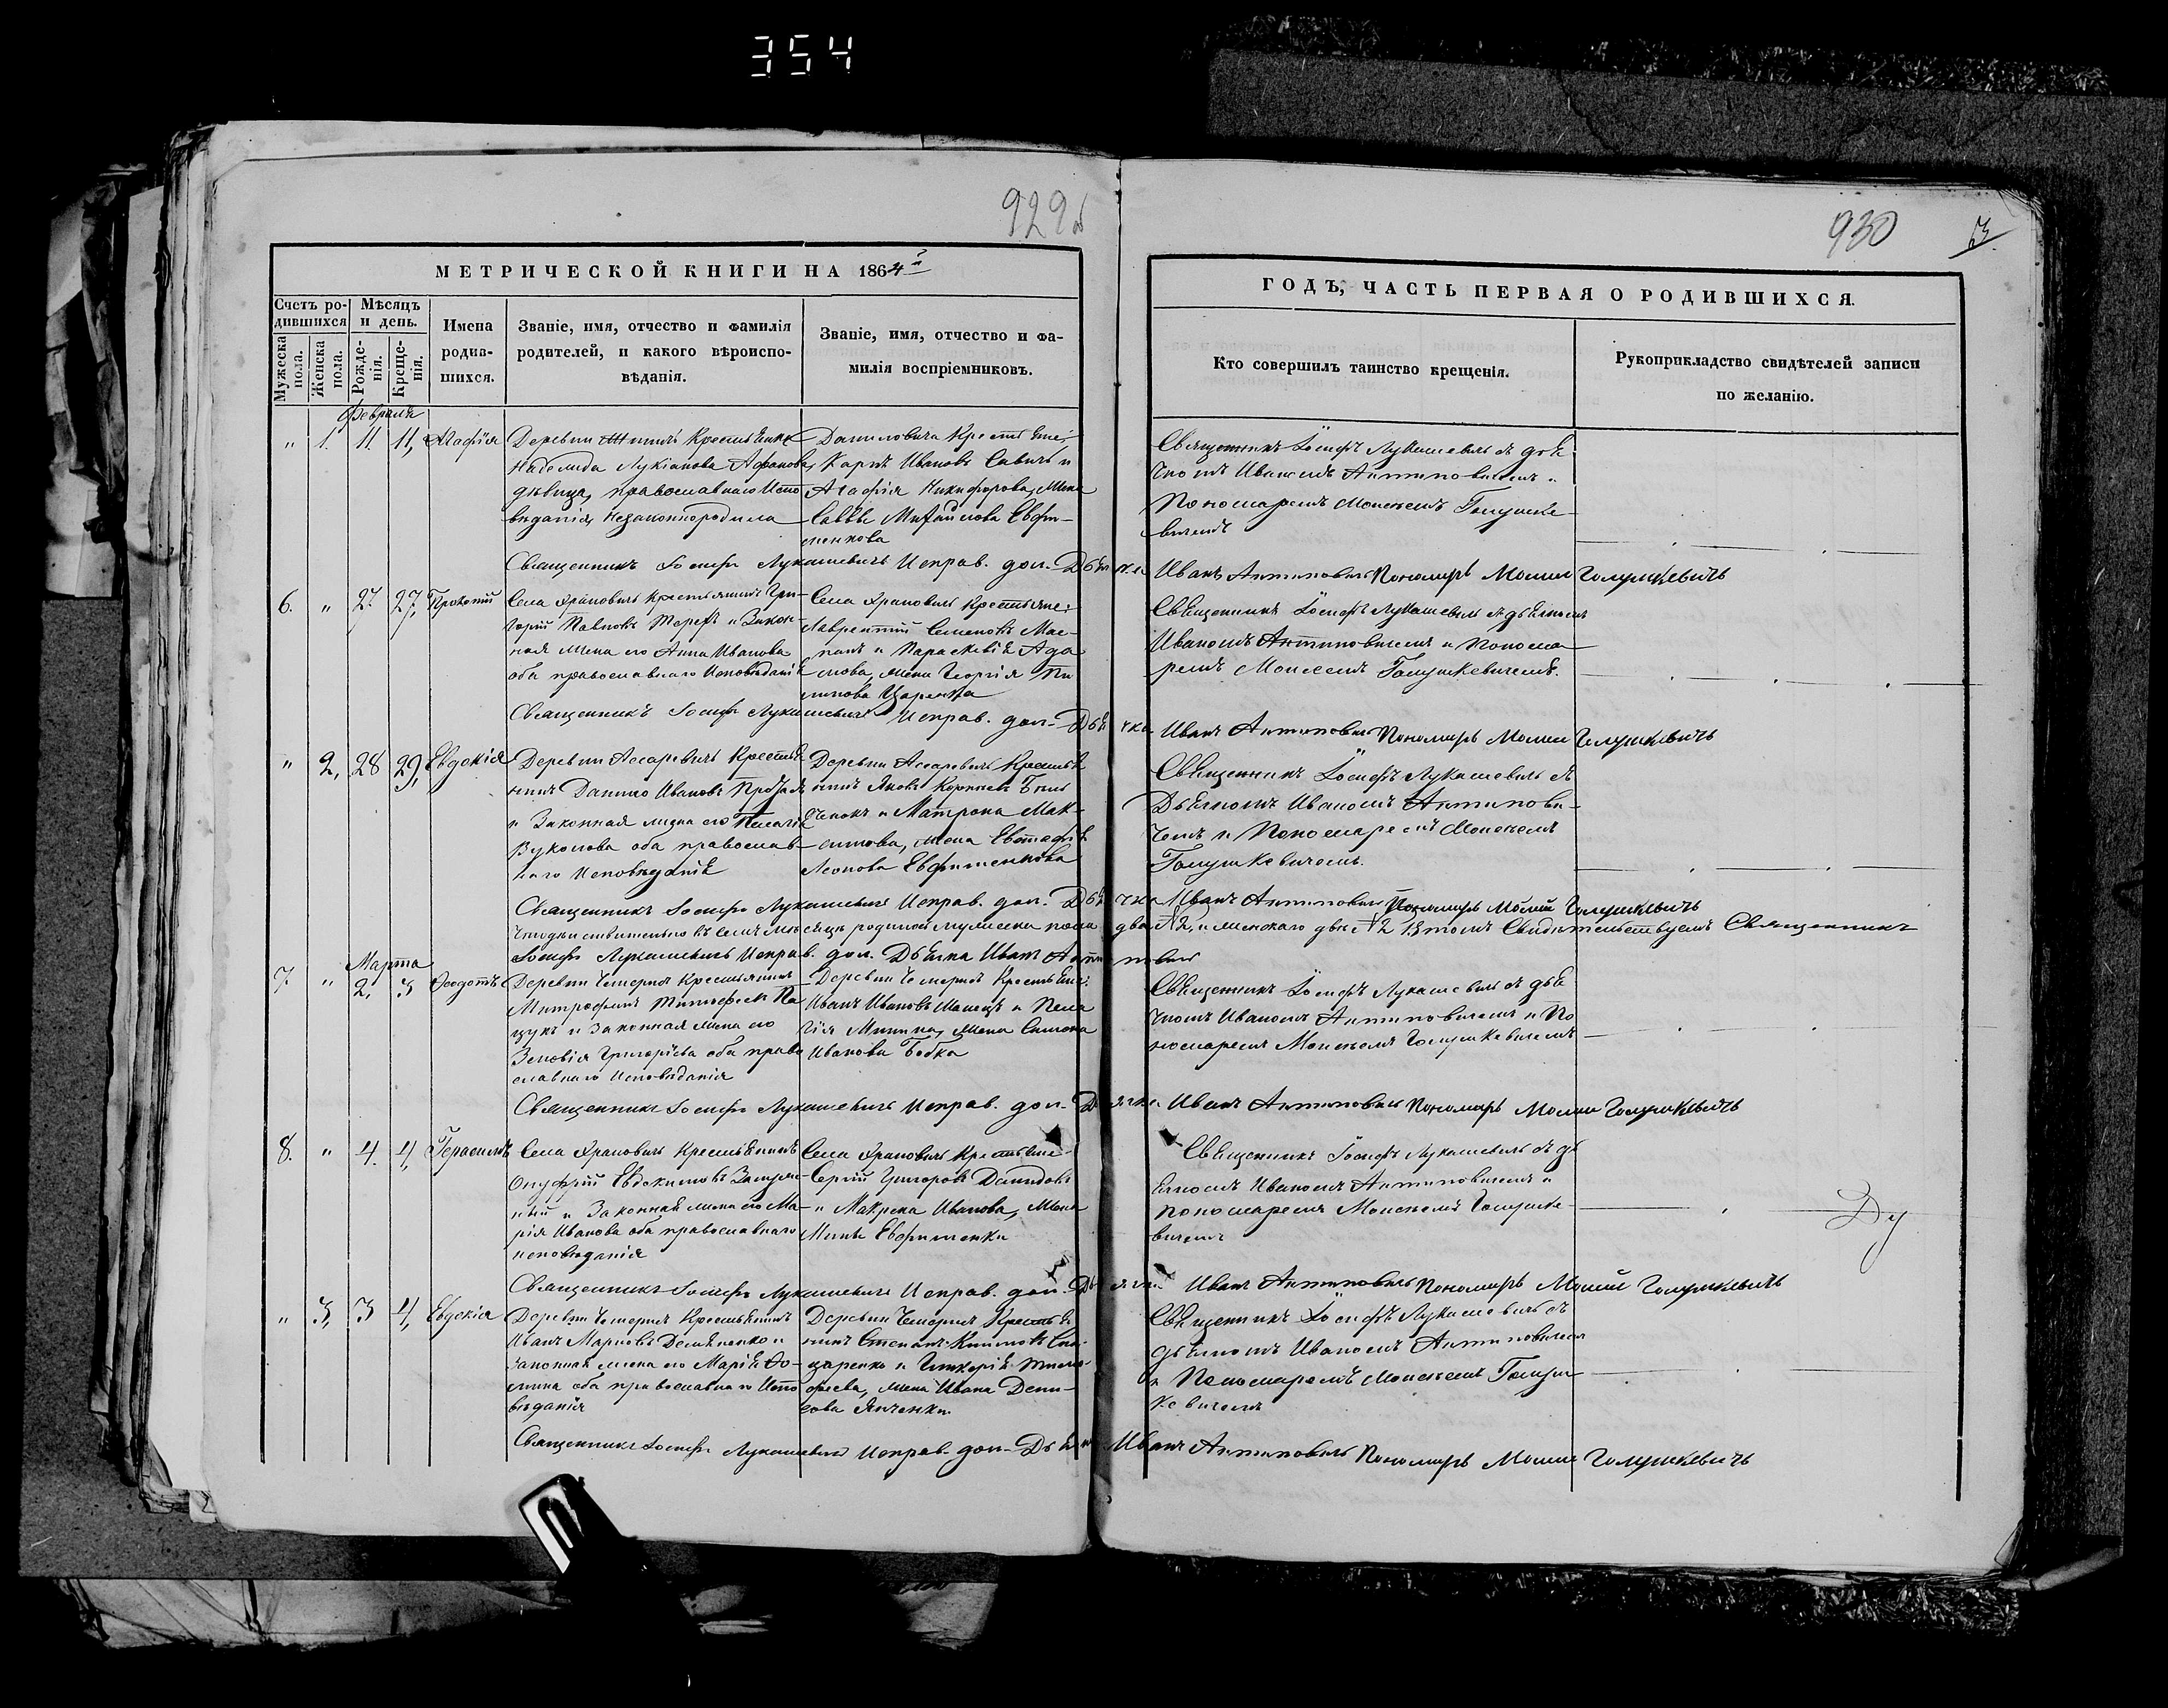 354
929
930
МЕТРИЧЕСКОЙ КНИГИ НА 1864й
Счетъ родившихся
Мѣсяцъ и день.
Мужеска пола.
Женска пола.
Рожденія.
Крещенія.
Имена родившихся.
Званіе, имя, отчество и фамилія
родителей, и какого вѣроиспо-
вѣданія.
Званіе, имя, отчество и фа-
милія воспріемниковъ.
ГОДЪ, ЧАСТЬ ПЕРВАЯ О РОДИВШИХСЯ.
Кто совершилъ таинство крещенія.
Рукоприкладство свидѣтелей записи
по желанію.
Февраля
" 1. 11. 11, Агафія
Деревни Крестьянка
Надежда Лукіанова Афанова
дѣвица, православнаго Испо
вѣданія, Незаконнородила
Даниловича Крестьяне,
Карпъ Ивановъ Савичъ и
Агафія Никифорова, Жена
Саввы Михайлова Евфи-
менкова
Священникъ Іосифъ Лукашевичъ съ дья
чкомъ Иваномъ Антиповичемъ и
Пономаремъ Моисеемъ Голушке-
вичемъ
Священникъ Іосифъ Лукашевичъ Исправ. дол. Дьячка Иванъ Антиповичъ Пономарь Моисей Голушкевичъ
6. " 27. 27, Прокопій
Села Храповичъ Крестьянинъ Гри-
горій Павловъ Терехъ и Закон-
ная жена его Анна Иванова
оба православнаго Исповѣданія
Села Храповичъ Крестьяне:
Лаврентій Семеновъ
и Параскевія Ада
мова, жена Георгія
Священникъ Іосифъ Лукашевичъ съ дьячкомъ
Иваномъ Антиповичемъ и Понома
ремъ Моисеемъ Голушкевичемъ.
Священникъ Іосифъ Лукашевичъ Исправ. дол. Дьячка Иванъ Антиповичъ Пономарь Моисей Голушкевичъ
" 2, 28 29, Евдокія
Деревни Асаревичъ Крестья
нинъ Данило Ивановъ
и Законная жена его Пелагія
Вуколова оба православ-
наго Исповѣданія
Деревни Асаревичъ Крестья
нинъ Яковъ Корнѣевъ
и Матрона Мак-
симова, жена Евстафія
Леонова Евфименкова
Священникъ Іосифъ Лукашевичъ съ
Дьячкомъ Иваномъ Антипови-
чемъ и Пономаремъ Моисеемъ
Голушкевичемъ.
Священникъ Іосифъ Лукашевичъ Исправ. дол. Дьячка Иванъ Антиповичъ Пономарь Моисей Голушкевичъ
Что дѣйствительно въ семъ мѣсяцѣ родилось мужеска пола два №2, и женскаго двѣ №2 въ томъ Свидѣтельствуемъ Священникъ
Іосифъ Лукашевичъ Исправ. дол. Дьячка Иванъ Антиповичъ
Марта
7. " 2, 3 Ѳеодотъ
Деревни Чемерня Крестьянинъ
Митрофанъ Тимофеевъ Па
цукъ и Законная жена его
Зеновія Григоріева оба право
славнаго Исповѣданія
Деревни Чемерня Крестьяне:
Иванъ Ивановъ и Пела
гія Минина, жена Симона
Иванова Бобка
Священникъ Іосифъ Лукашевичъ съ дья
чкомъ Иваномъ Антиповичемъ и По
номаремъ Моисеемъ Голушкевичемъ
Священникъ Іосифъ Лукашевичъ Исправ. дол. Дьячка Иванъ Антиповичъ Пономарь Моисей Голушкевичъ
8. " 4. 4, Герасимъ
Села Храповичъ Крестьянинъ
Онуфрій Евдокимовъ
и Законная жена его Ма-
рія Иванова оба православнаго
исповѣданія
Села Храповичъ Крестьяне
Сергій Григоровъ Демидовъ
и Макрена Иванова, жена
Мины Евфименки
Священникъ Іосифъ Лукашевичъ съ дь
ячкомъ Иваномъ Антиповичемъ и
пономаремъ Моисеемъ Голушке-
вичемъ
Священникъ Іосифъ Лукашевичъ Исправ. дол. Дьячка. Иванъ Антиповичъ Пономарь Моисей Голушкевичъ
" 3, 3 4, Евдокія
Деревни Чемерня Крестьянинъ
Иванъ Марковъ Демьяненко и
законная жена его Марія Ѳо-
мина оба православнаго Испо
вѣданія
Деревни Чемерня Крестья
нинъ Степанъ
и Гликерія Тимо-
феева, жена Ивана Дени-
сова Янченки
Священникъ Іосифъ Лукашевичъ съ
дьячкомъ Иваномъ Антиповичемъ
и Пономаремъ Моисеемъ Голуш
кевичемъ
Священникъ Іосифъ Лукашевичъ Исправ. дол. Дьячка Иванъ Антиповичъ Пономарь Моисей Голушкевичъ